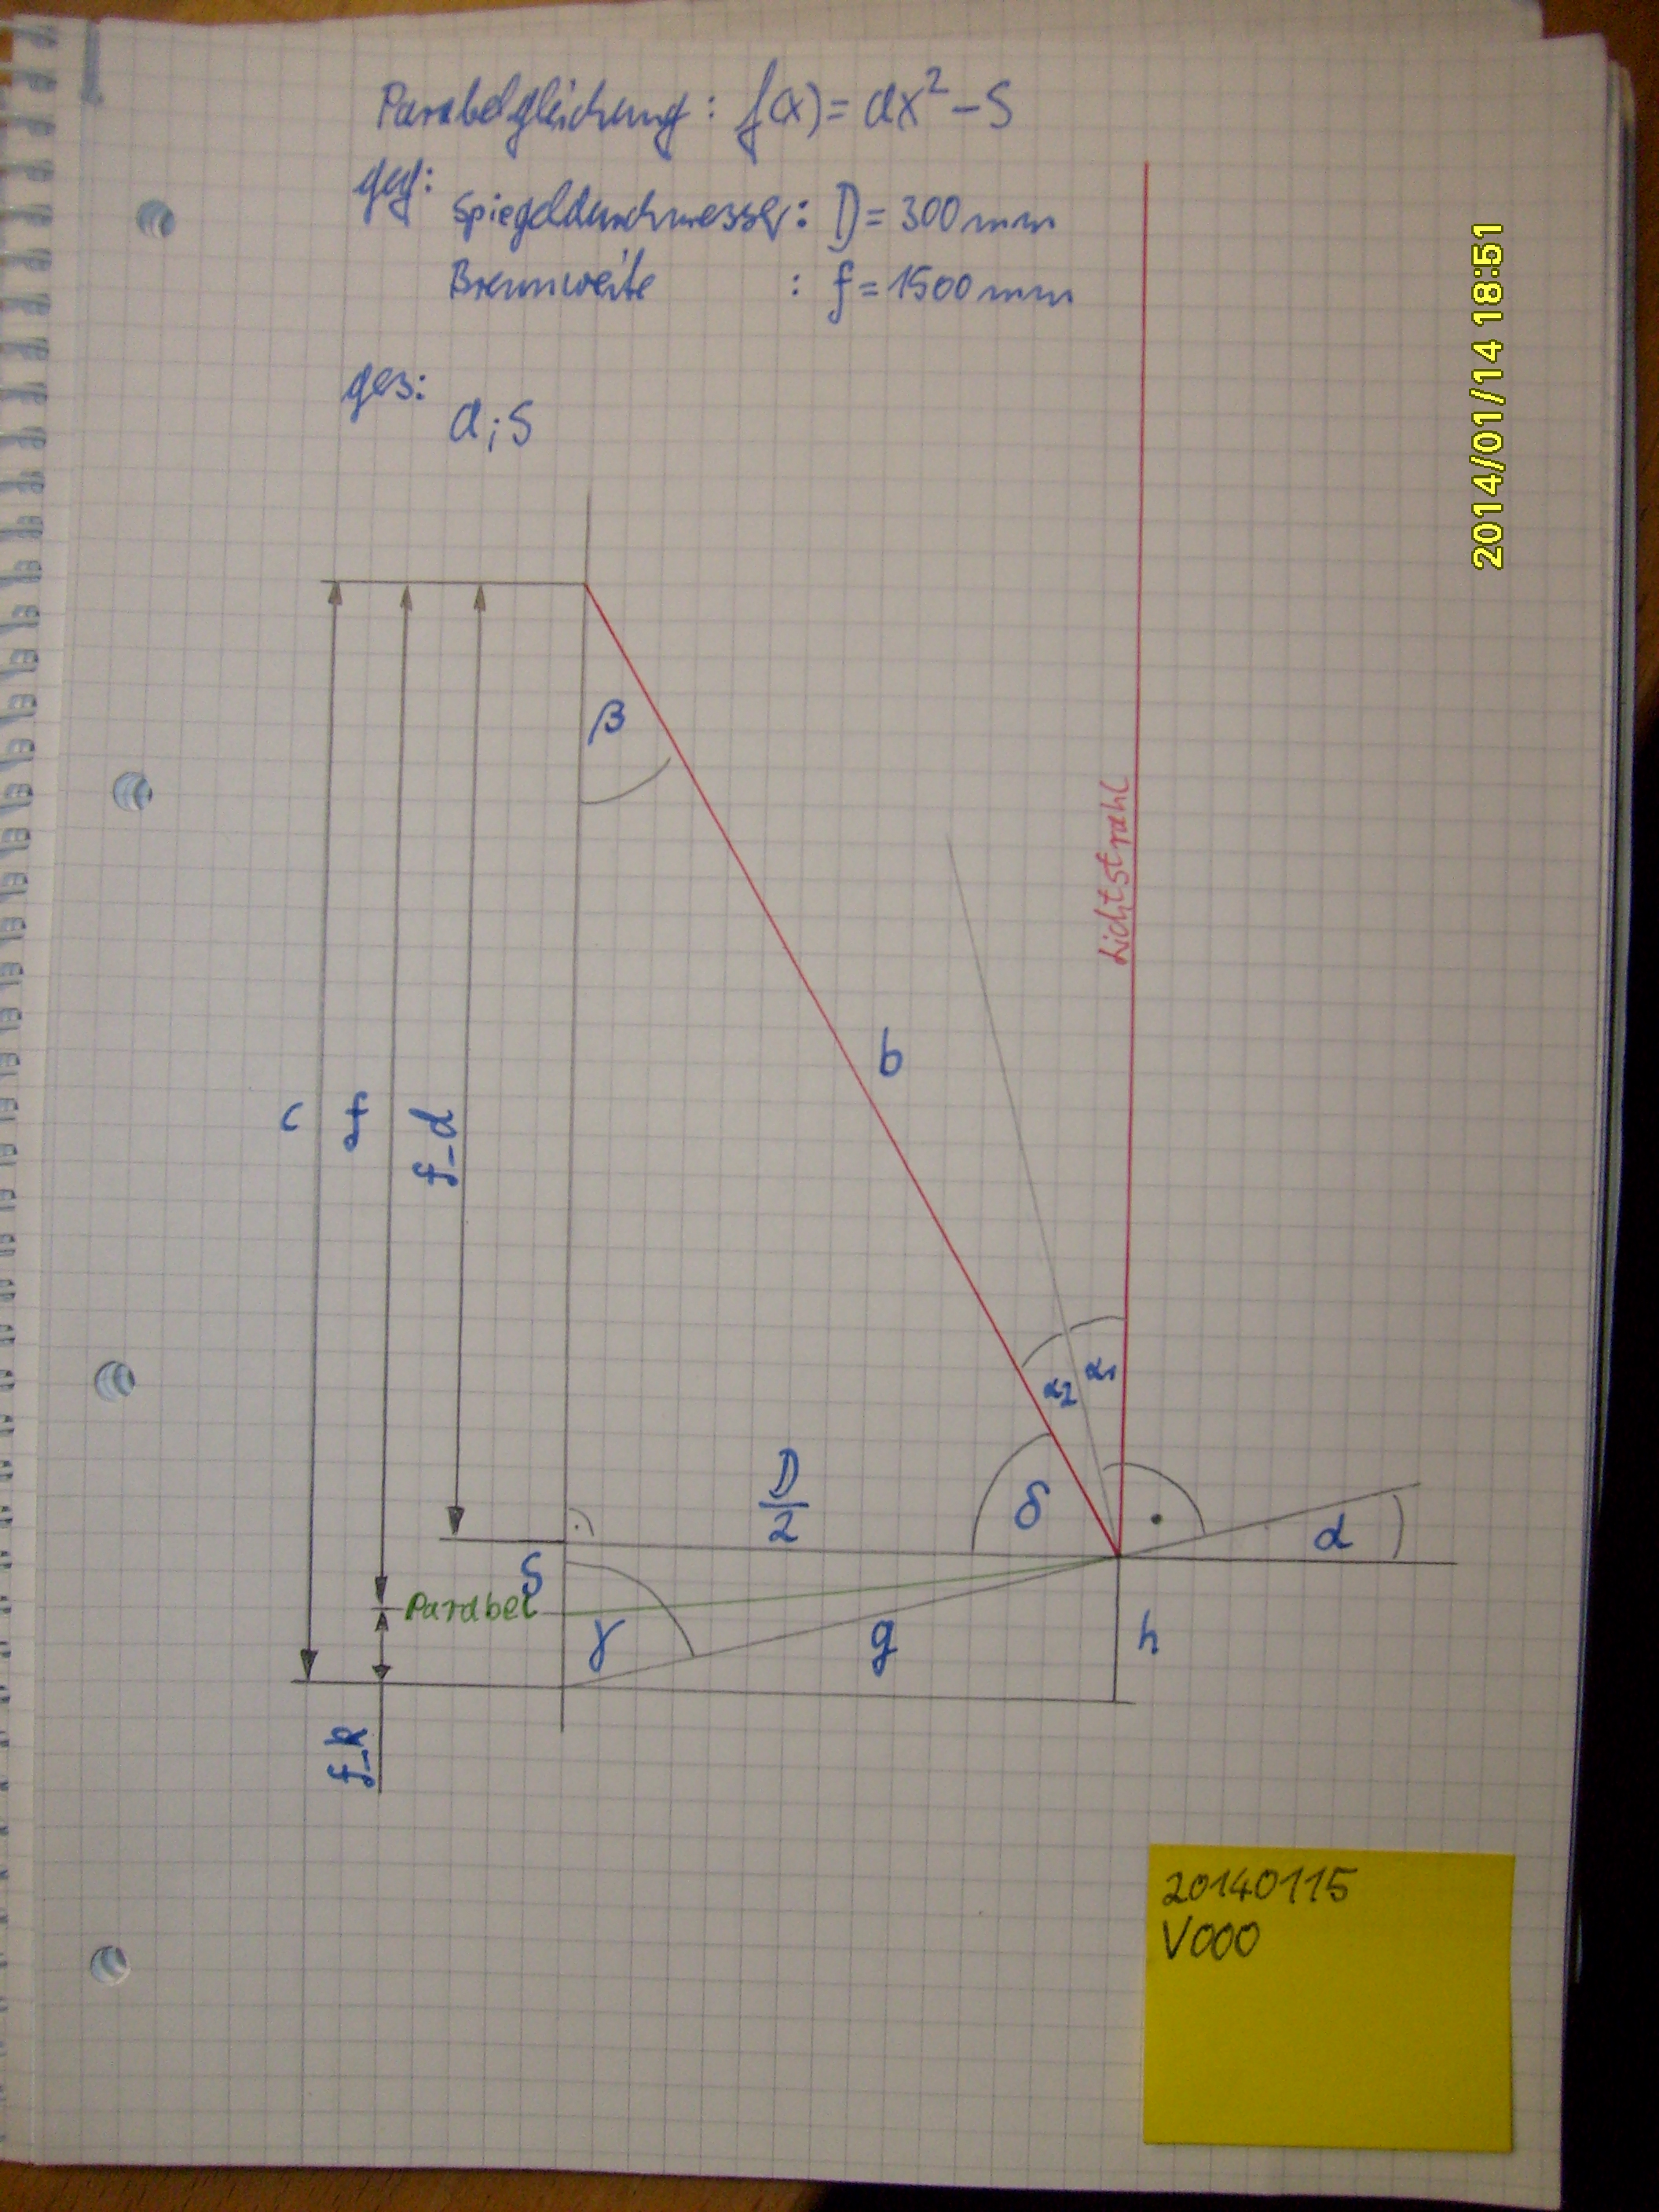 Parabelgleichung: f(x)= ax²-S
geg:
Spiegeldurchmesser: D= 300mm
Brennweite : f=1500mm
ges:
a;S
2014/01/14 18:51
β
Lichtstrahl
b
c
f
f_d
α2
α1
D/2
δ
α
S
Parabel
γ
g
h
f_k
20140115
V000